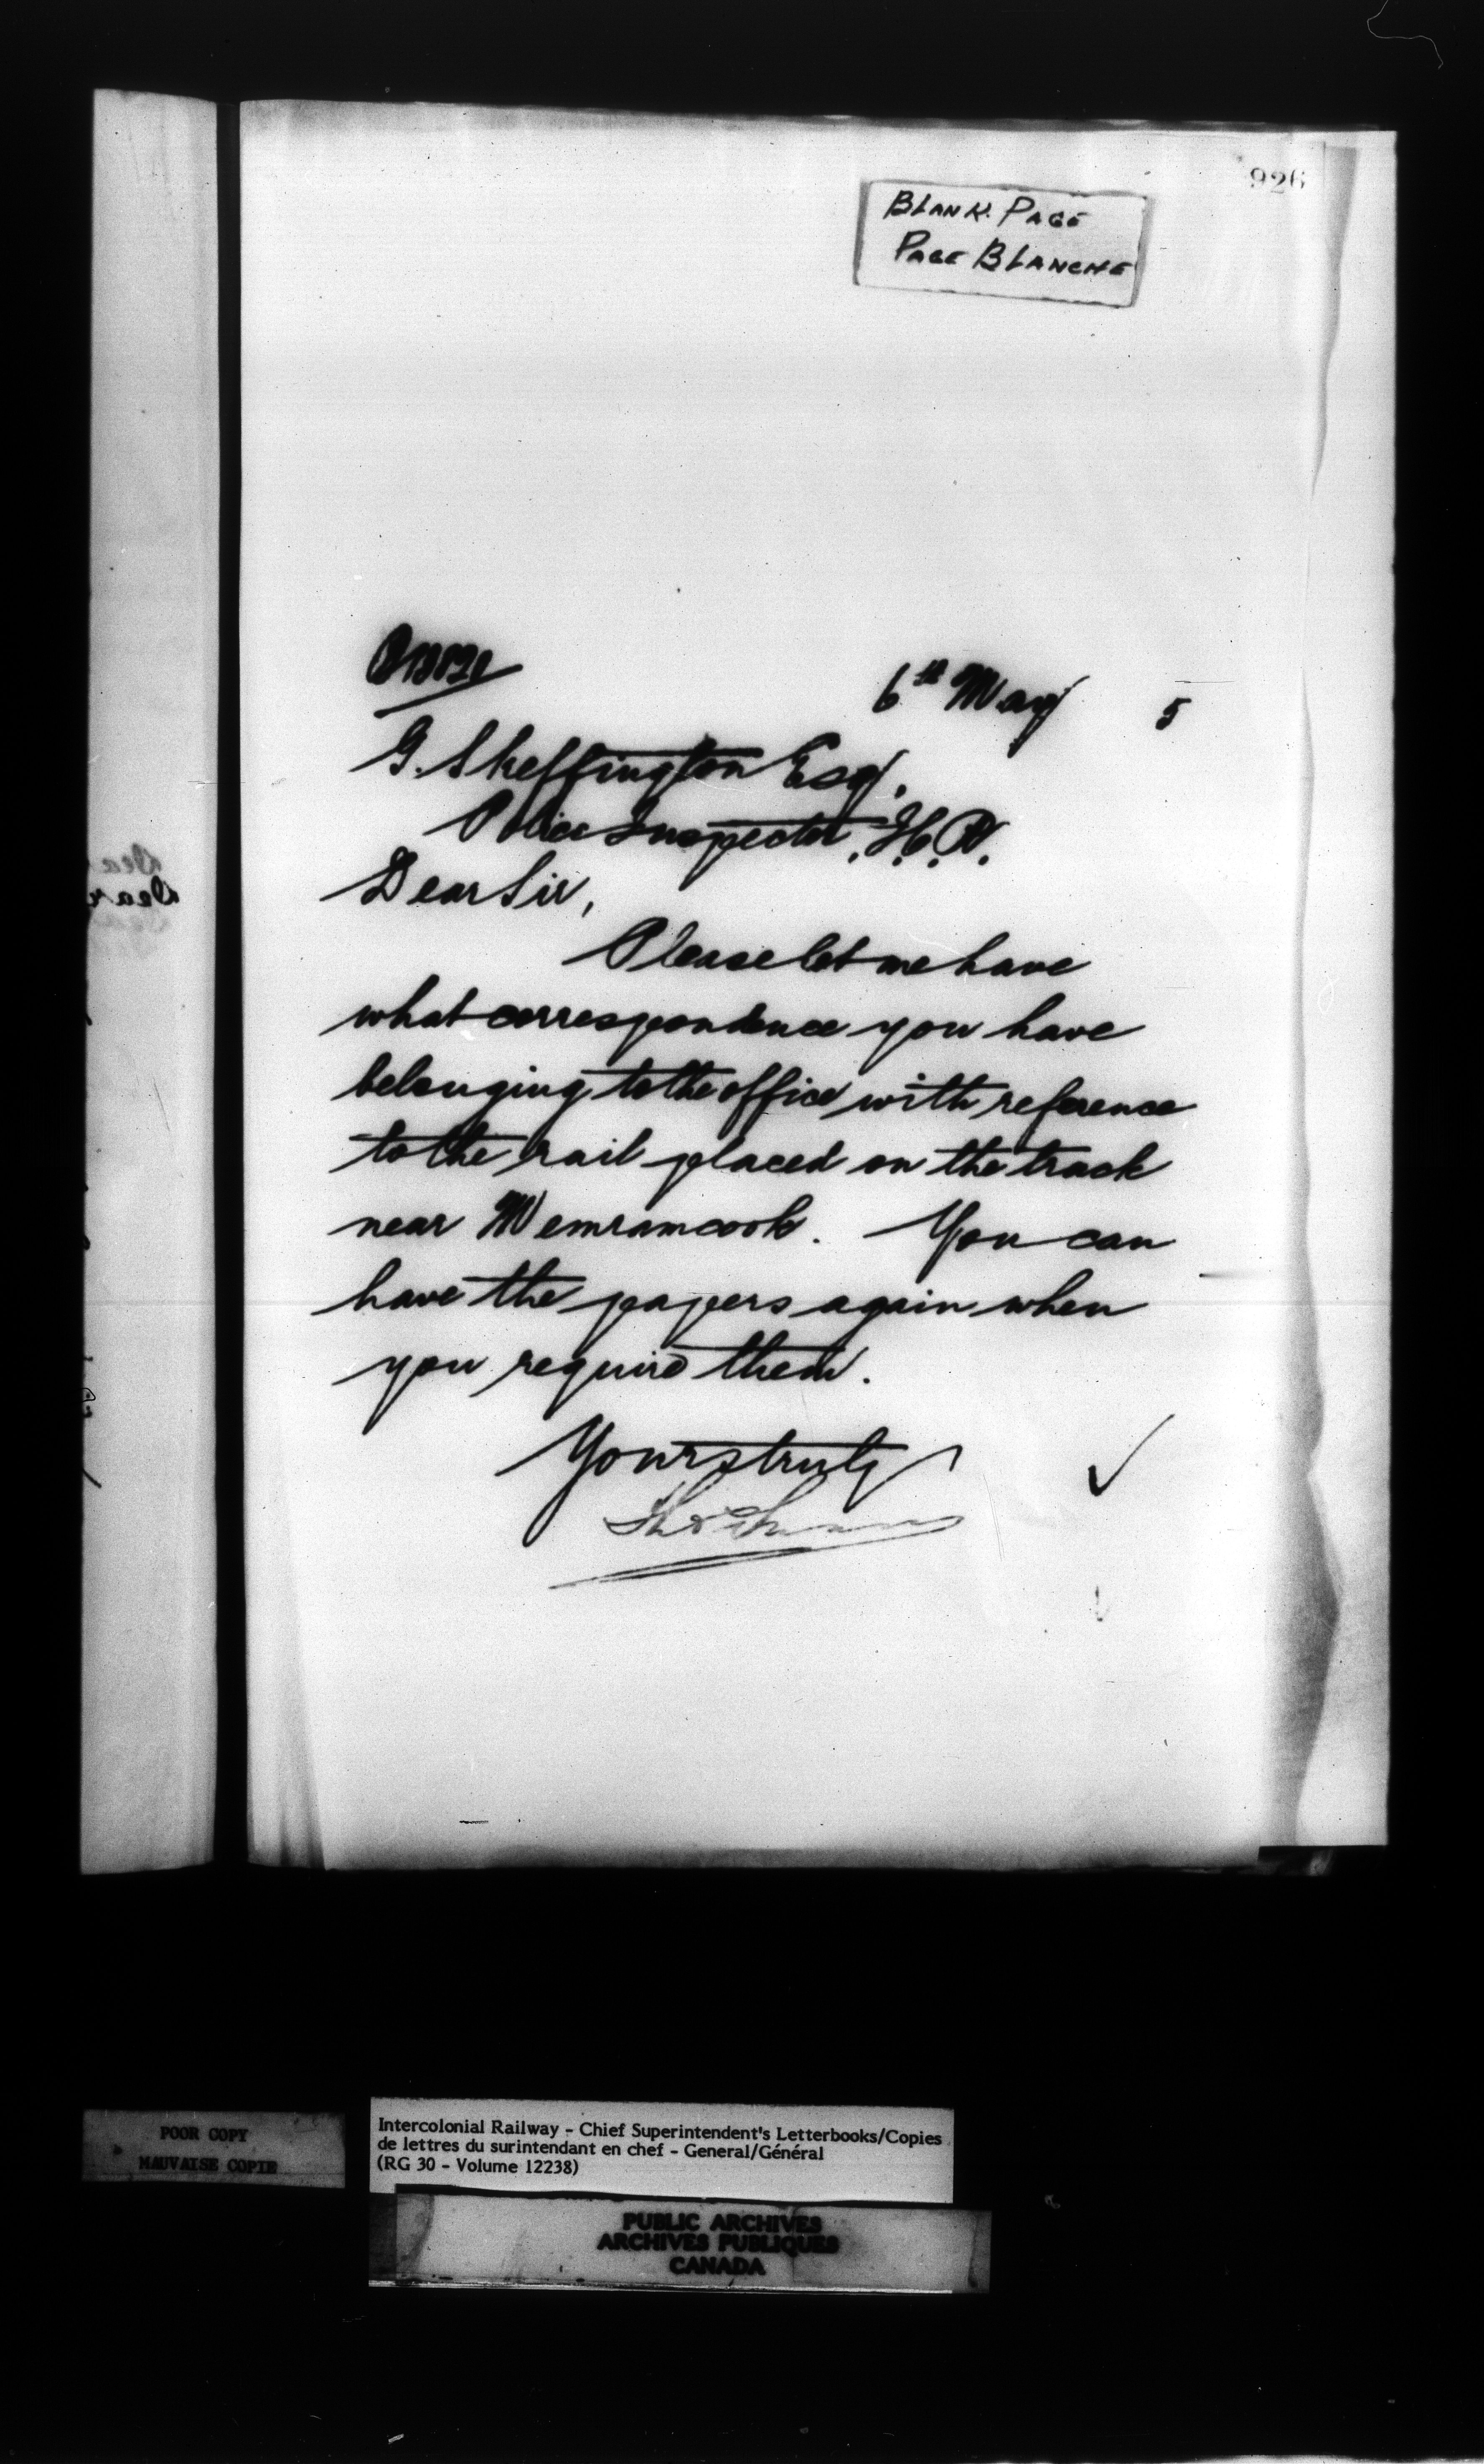 926
BLANK PAGE
PAGE BLANCHE
6th May 5
G. Skeffington Esq.
Police Inspector,
Dear Sir,
Please let me have
what correspondence you have
belonging to the office with reference
to the rail placed on the track
near Memramcook. You can
have the papers again when
you require them.
Yours truly
Dear
POOR COPY
MAUVAISE COPIE
Intercolonial Railway - Chief Superintendent's Letterbooks/Copies
de lettres du surintendant en chef - General/Général
(RG 30 - Volume 12238)
PUBLIC ARCHIVES
ARCHIVES PUBLIQUES
CANADA